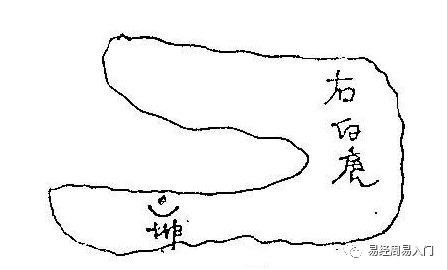 右白虎
坤
易经周易入门